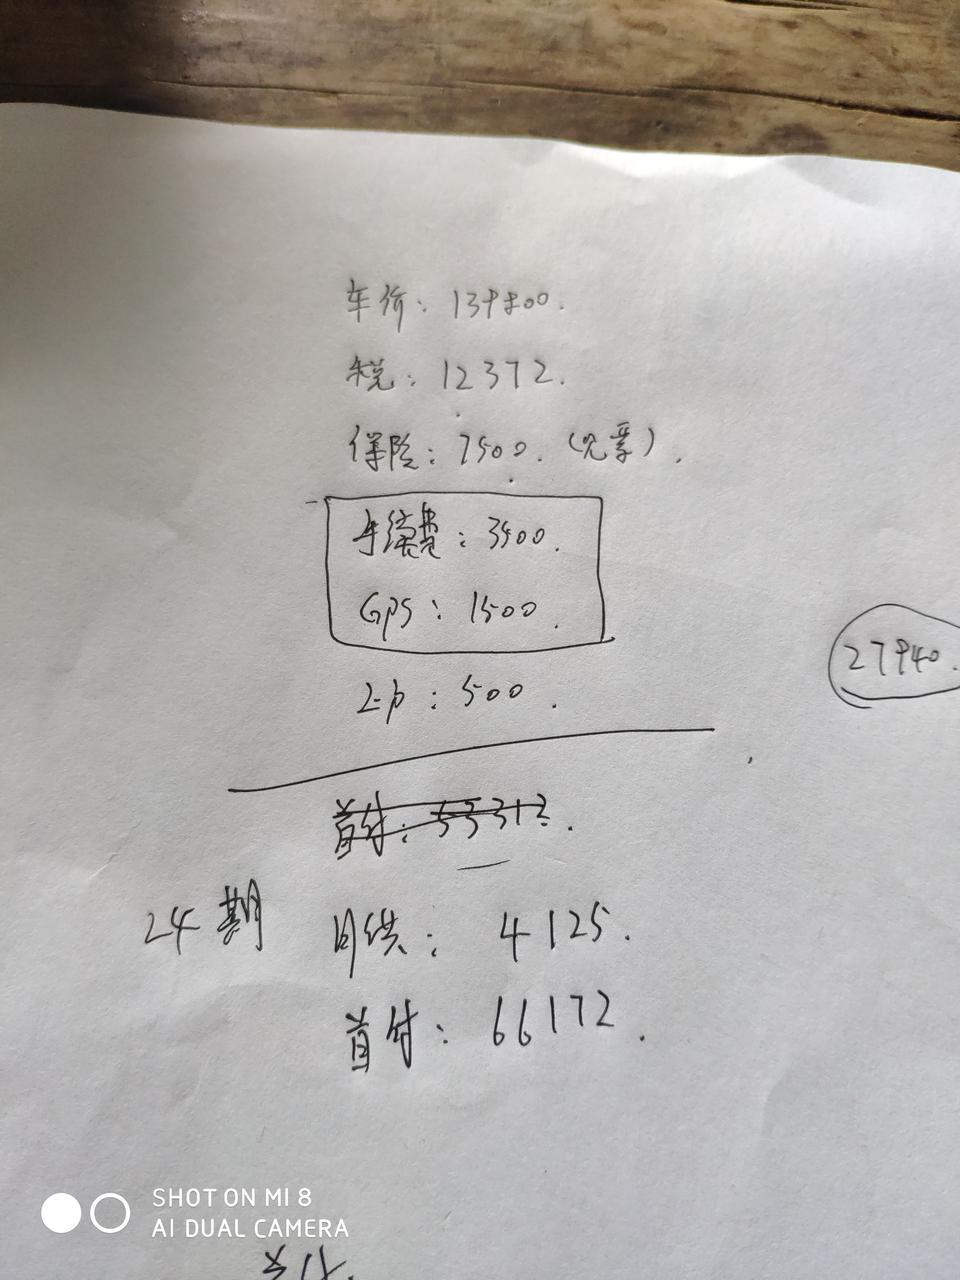 车价：139800.
税：12372.
保险：7500.
手续费：3500.
GPS：1500.
27940.
上户：500.
首付：53312.
24期 月供：4125.
首付：66172.
SHOT ON MI 8
AI DUAL CAMERA